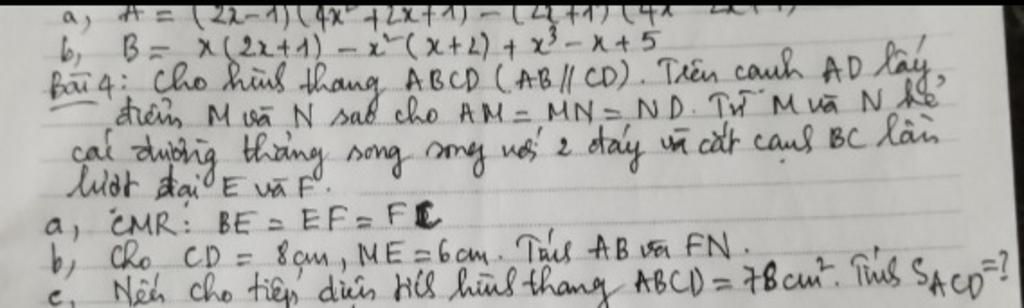 a, A = (2x-1)(4x²+2x+1) - (2x+1)(4x² 2x+1)
b, B = x(2x+1) - x²(x+2) + x³ - x + 5
Bài 4: Cho hình thang ABCD (AB // CD). Trên cạnh AD lấy
điểm M và N sao cho AM = MN = ND. Từ M và N kẻ
các đường thẳng song song với 2 đáy và cắt cạnh BC lần
lượt tại E và F.
a, CMR: BE = EF = FC
b, Cho CD = 8cm, ME = 6cm. Tính AB và FN.
c, Nếu cho tiếp diện tích hình thang ABCD = 78cm². Tính S_ACD = ?